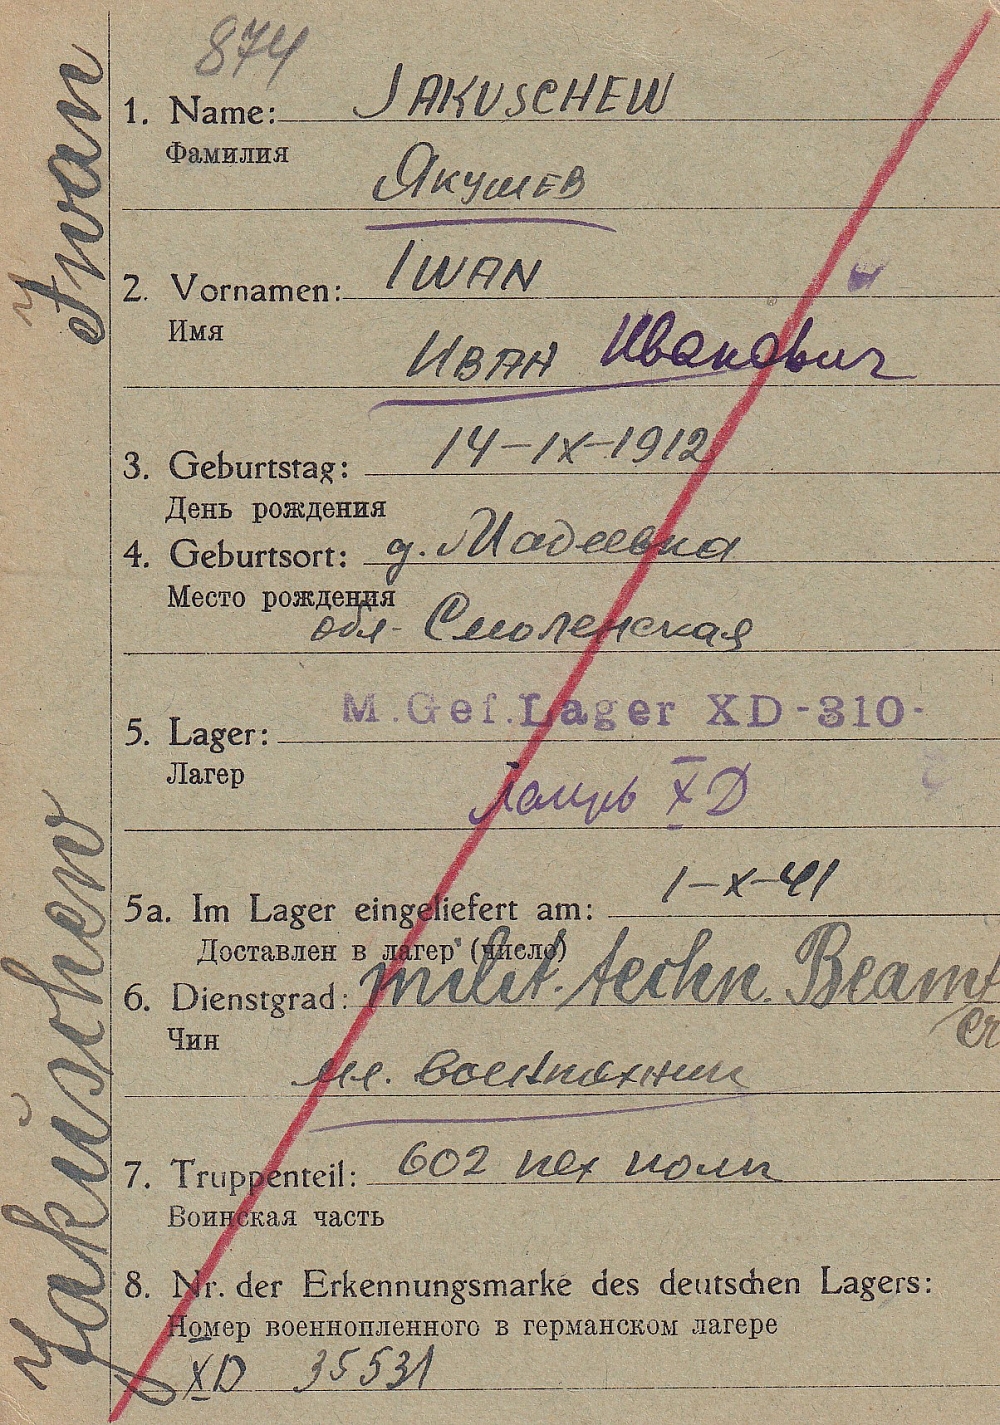 874
1. Name: JAKUSCHEW
Фамилия
Якушев
2. Vornamen: IWAN
Имя
Иван Иванович
3. Geburtstag: 14-IX-1912
День рождения
4. Geburtsort: д. Мадеевка
Место рождения
обл. Смоленская
5. Lager: M.Gef.Lager XD-310-
Лагер
XД
5a. Im Lager eingeliefert am: 1-X-41
Доставлен в лагер (число)
6. Dienstgrad: milit. techn. Beamt
er
Чин
мл. воентехник
7. Truppenteil: 602 пех полк
Воинская часть
8. Nr. der Erkennungsmarke des deutschen Lagers:
Номер военнопленного в германском лагере
XD 35531
Jakuschew Iwan